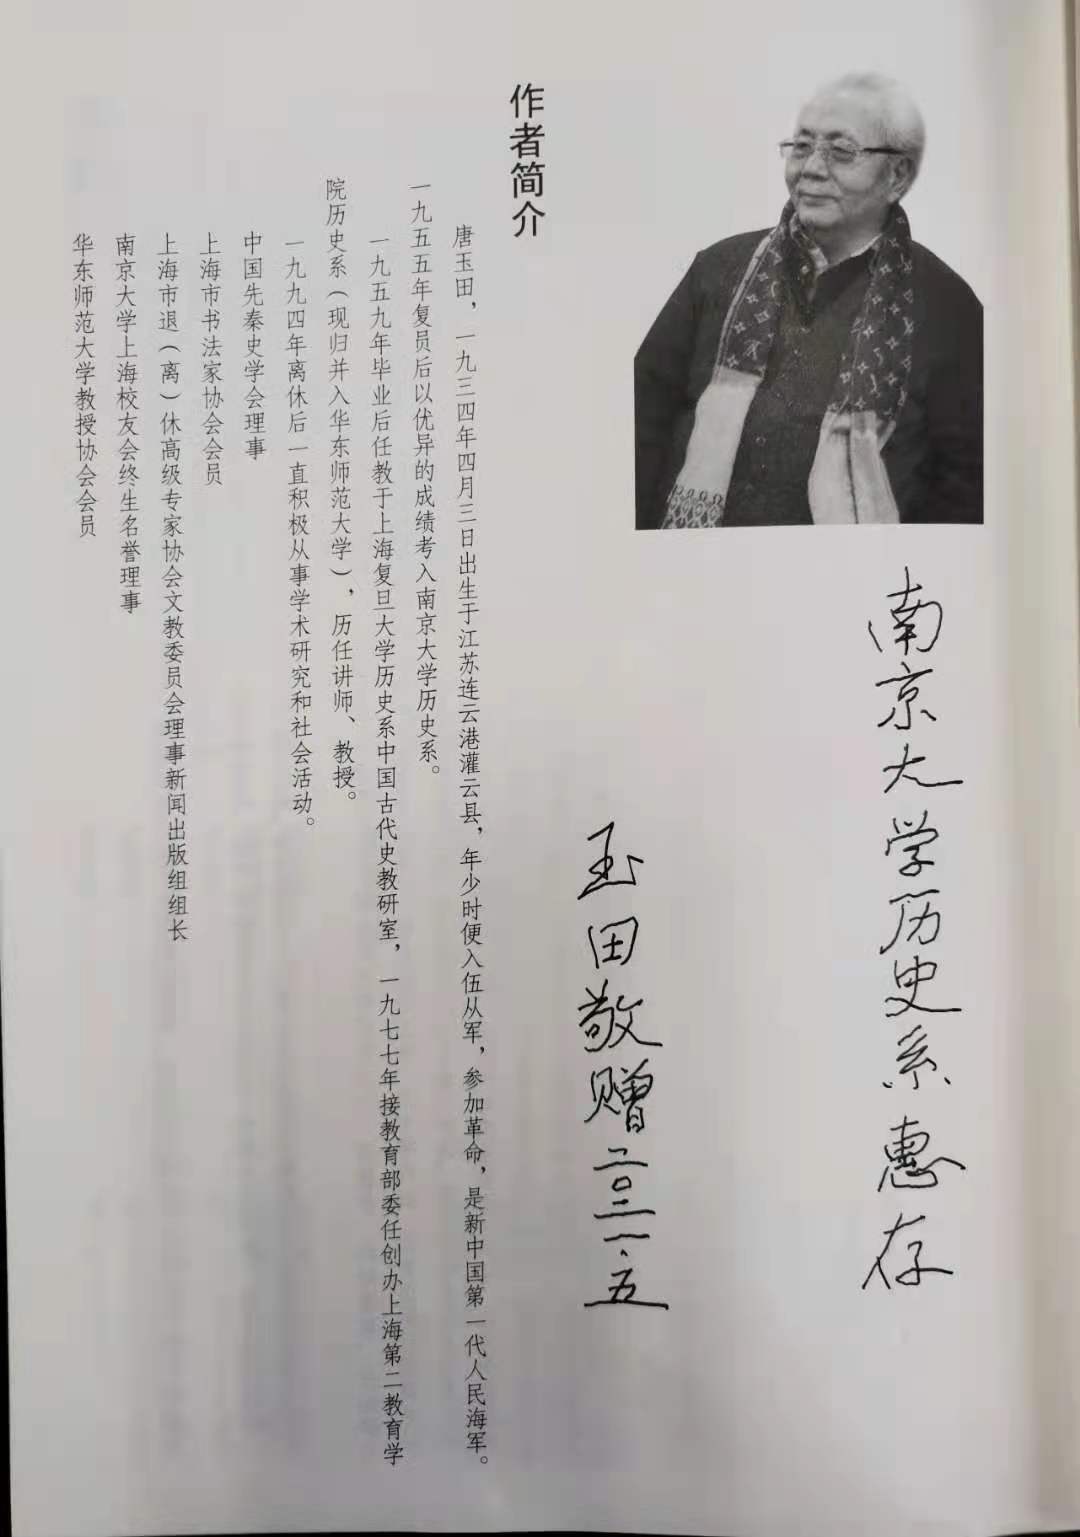 南京大学历史系惠存
玉田敬赠二〇二一·五
作者简介
唐玉田，一九三四年四月三日出生于江苏连云港灌云县，年少时便入伍从军，参加革命，是新中国第一代人民海军。
一九五五年复员后以优异的成绩考入南京大学历史系。
一九五九年毕业后任教于上海复旦大学历史系中国古代史教研室，一九七七年接教育部委任创办上海第二教育学
院历史系（现归并入华东师范大学），历任讲师、教授。
一九九四年离休后一直积极从事学术研究和社会活动。
中国先秦史学会理事
上海市书法家协会会员
上海市退（离）休高级专家协会文教委员会理事新闻出版组组长
南京大学上海校友会终生名誉理事
华东师范大学教授协会会员